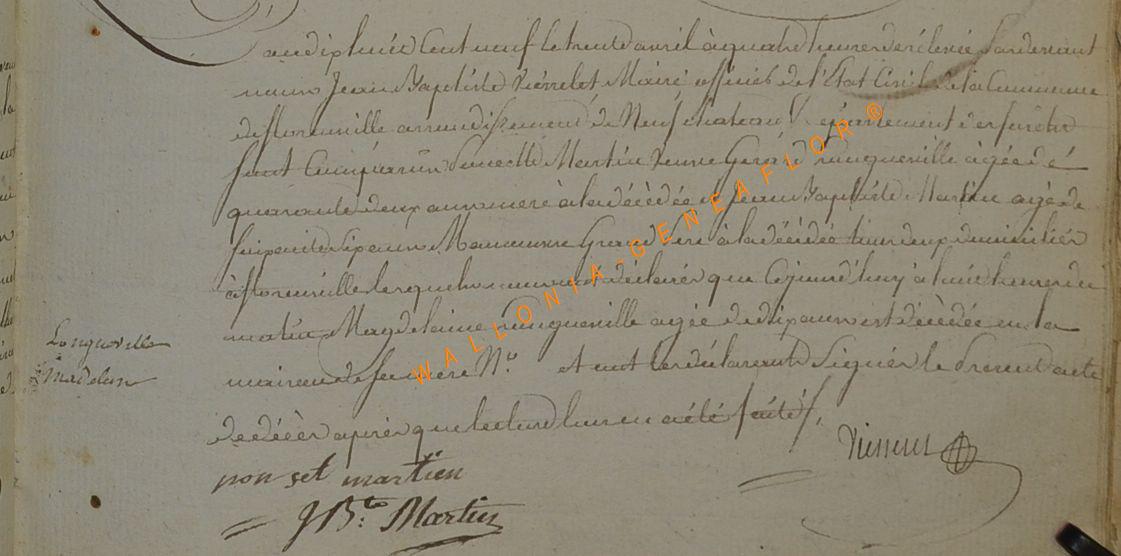 an dix huit cent neuf le trente avril à quatre heures de rélevée Pardevant
nous Jean Baptiste Pierret Maire officier de l'Etat Civil de la Commune
de florenville arrondissement de Neufchateau Département des forêts
sont Comparus Martin veuve Gerard Longueville agée de
quarante deux ans mere à la décèdée et Jean Baptiste Martin agé de
ans Grand à la décédée tous deux domiciliés
à florenville lesquels nous ont déclarés que Cejourd'huy à huit heures du
matin Magdelaine Longueville agée de dix ans est décèdée en la
maison de sa mere N.º et ont les déclarants Signés le Present acte
de décès après que lecture leur en a été faite /.
Longueville
Madelene
ponset martien
J Bte Martin
WALLONIA-GENEAFLOR®